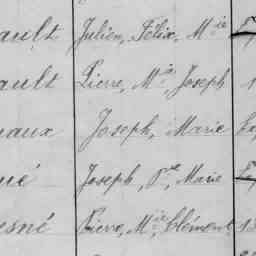 ault Julien, Félix, M^ie
ault Pierre, M^ie, Joseph 1
aux Joseph, Marie
ué Joseph, P^re, Marie
esné Pierre, M^ie, Clément 1